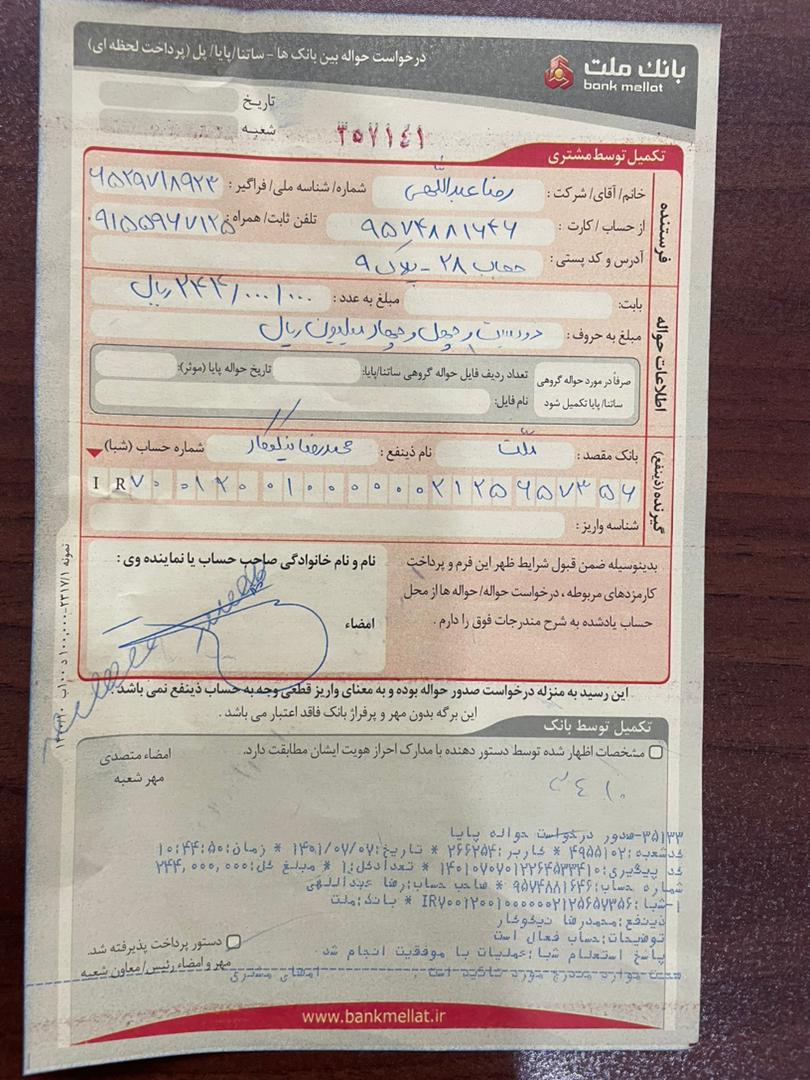 درخواست حواله بین بانک ها - ساتنا/پایا/پل (پرداخت لحظه ای)
بانک ملت
bank mellat
تاریخ
شعبه
۳۵۷۱۴۱
تکمیل توسط مشتری
فرستنده
خانم/ آقای/ شرکت: رضا عبداللهی شماره/ شناسه ملی/ فراگیر: ۶۵۲۹۷۱۸۹۲۳
از حساب/ کارت: ۹۵۷۴۸۸۱۶۴۶ تلفن ثابت/ همراه: ۰۹۱۵۵۹۶۷۱۲۵
آدرس و کد پستی: ۲۸ - پلاک ۹
اطلاعات حواله
بابت: مبلغ به عدد: ۲۴۴/۰۰۰/۰۰۰ ریال
مبلغ به حروف: دویست و چهل و چهار میلیون ریال
صرفاً در مورد حواله گروهی ساتنا/ پایا تکمیل شود
تعداد ردیف فایل حواله گروهی ساتنا/پایا: تاریخ حواله پایا (موثر):
نام فایل:
گیرنده (ذینفع)
بانک مقصد: ملت نام ذینفع: محمدرضا نیکوکار شماره حساب (شبا)
IR ۷۰۰۱۲۰۰۱۰۰۰۰۰۰۲۱۲۵۶۵۷۳۵۶
شناسه واریز:
بدینوسیله ضمن قبول شرایط ظهر این فرم و پرداخت
کارمزدهای مربوطه، درخواست حواله/ حواله ها از محل
حساب یادشده به شرح مندرجات فوق را دارم.
نام و نام خانوادگی صاحب حساب یا نماینده وی:
امضاء
این رسید به منزله درخواست صدور حواله بوده و به معنای واریز قطعی وجه به حساب ذینفع نمی باشد.
این برگه بدون مهر و پرفراژ بانک فاقد اعتبار می باشد.
تکمیل توسط بانک
مشخصات اظهار شده توسط دستور دهنده با مدارک احراز هویت ایشان مطابقت دارد.
امضاء متصدی
مهر شعبه
۳۵۱۳۳-صدور درخواست حواله پایا
کدشعبه:۴۹۵۵۱۰۲ * کاربر:۲۶۶۲۵۴ * تاریخ:۱۴۰۱/۰۷/۰۷ * زمان:۱۰:۴۴:۵۰
کد پیگیری:۱۴۰۱۰۷۰۷۰۱۲۲۶۴۵۳۳۴۱۰ * تعدادکل:۱ * مبلغ کل:۲۴۴,۰۰۰,۰۰۰
شماره حساب:۹۵۷۴۸۸۱۶۴۶ * صاحب حساب:رضا عبداللهی
۱-شبا:IR۷۰۰۱۲۰۰۱۰۰۰۰۰۰۲۱۲۵۶۵۷۳۵۶ * بانک:ملت
ذینفع:محمدرضا نیکوکار
توضیحات:حساب فعال است
پاسخ استعلام شبا:عملیات با موفقیت انجام شد.
صحت موارد مندرج مورد تائید است. امضای مشتری
دستور پرداخت پذیرفته شد.
مهر و امضاء رئیس/ معاون شعبه
www.bankmellat.ir